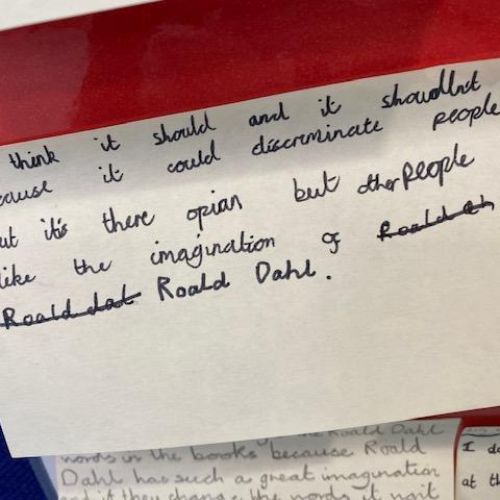 think it should and it shoudlnt
cause it could discreminate people
ut it's there opian but other people
like the imagination of Roald Dh
Roald dal Roald Dahl.
the Roald Dahl
words in the books because Roald
Dahl has such a great imagination
and if they change the words it
I do
at t